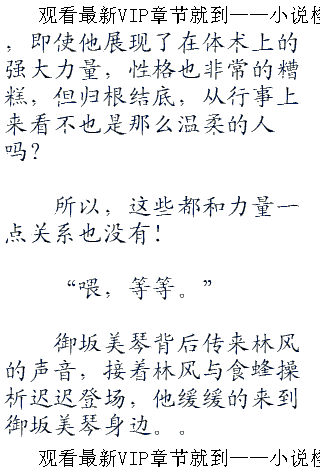 观看最新VIP章节就到——小说检
，即使他展现了在体术上的
强大力量，性格也非常的糟
糕，但归根结底，从行事上
来看不也是那么温柔的人
吗？
所以，这些都和力量一
点关系也没有！
“喂，等等。”
御坂美琴背后传来林风
的声音，接着林风与食蜂操
析迟迟登场，他缓缓的来到
御坂美琴身边。。
观看最新VIP章节就到——小说检